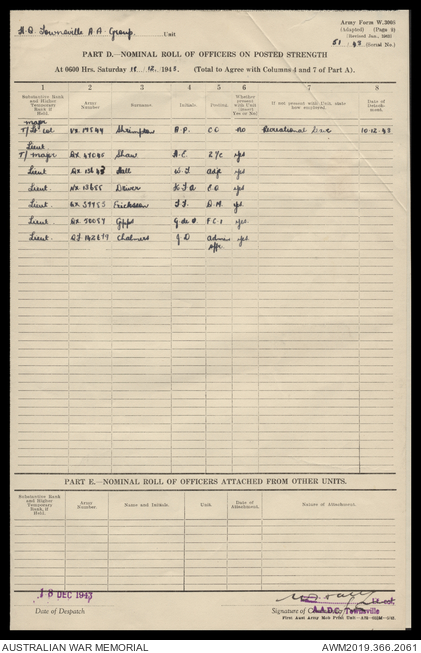 H.Q. Townsville A A Group. Unit
Army Form W.3005
(Adapted) (Page 3)
(Revised Jan., 1943)
51 / 43 (Serial No.)
PART D.—NOMINAL ROLL OF OFFICERS ON POSTED STRENGTH
At 0600 Hrs. Saturday 18 . 12 . 1943. (Total to Agree with Columns 4 and 7 of Part A).
1 2 3 4 5 6 7 8
Substantive Rank and Higher Temporary Rank if Held. Army Number. Surname Initials. Posting. Whether present with Unit (insert Yes or No) If not present with Unit, state how employed. Date of Detachment.
Major
T/Lt Col Shrimpton A.P. CO no Recreational Lve 10.12.43
Lieut
T/ Major Shaw 2/c yes
Lieut Hall W.J. adjt yes
Lieut NX 13655 Driver yes
Lieut. Erickson yes
Lieut Gipps yes
Lieut. Chalmers J D admin offr. yes
PART E.—NOMINAL ROLL OF OFFICERS ATTACHED FROM OTHER UNITS.
Substantive Rank and Higher Temporary Rank, if Held. Army Number. Name and Initials. Unit Date of Attachment. Nature of Attachment.
18 DEC 1943
Lt-Col.
Date of Despatch
Signature of
A.A.D.C. Townsville
First Aust Army Mob Print Unit
AUSTRALIAN WAR MEMORIAL AWM2019.366.2061